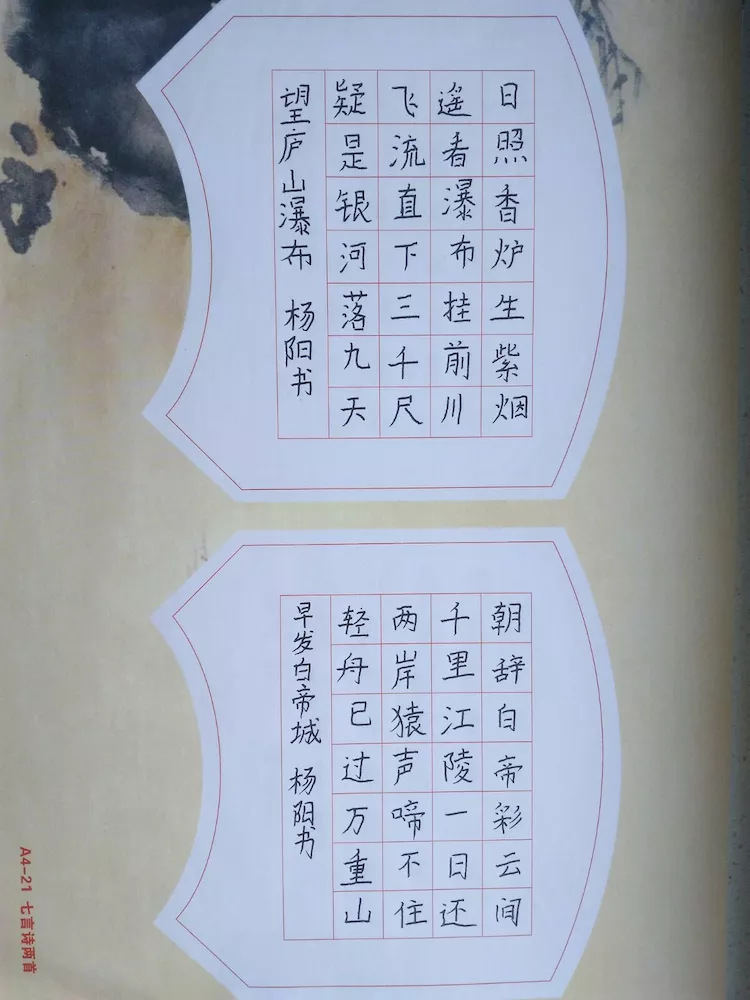 日照香炉生紫烟
遥看瀑布挂前川
飞流直下三千尺
疑是银河落九天
望庐山瀑布 杨阳书
朝辞白帝彩云间
千里江陵一日还
两岸猿声啼不住
轻舟已过万重山
早发白帝城 杨阳书
A4-21 七言诗两首